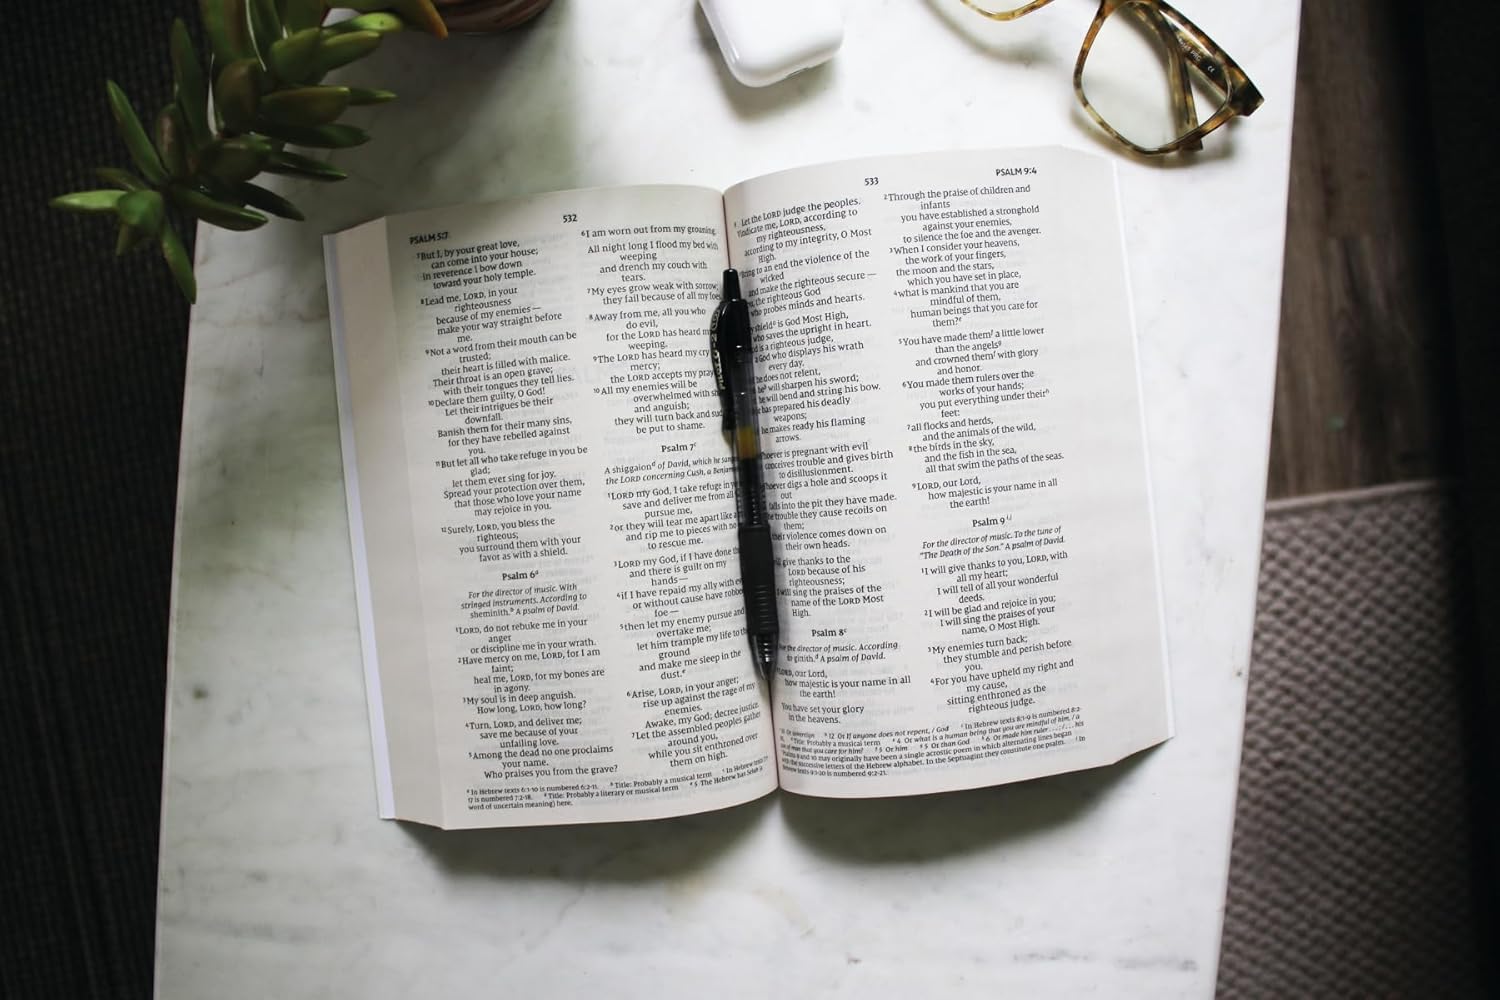 PSALM 5:7
532
⁷But I, by your great love,
can come into your house;
in reverence I bow down
toward your holy temple.
⁸Lead me, LORD, in your
righteousness
because of my enemies —
make your way straight before
me.
⁹Not a word from their mouth can be
trusted;
their heart is filled with malice.
Their throat is an open grave;
with their tongues they tell lies.
¹⁰Declare them guilty, O God!
Let their intrigues be their
downfall.
Banish them for their many sins,
for they have rebelled against
you.
¹¹But let all who take refuge in you be
glad;
let them ever sing for joy.
Spread your protection over them,
that those who love your name
may rejoice in you.
¹²Surely, LORD, you bless the
righteous;
you surround them with your
favor as with a shield.
Psalm 6ᵃ
For the director of music. With
stringed instruments. According to
sheminith.ᵇ A psalm of David.
¹LORD, do not rebuke me in your
anger
or discipline me in your wrath.
²Have mercy on me, LORD, for I am
faint;
heal me, LORD, for my bones are
in agony.
³My soul is in deep anguish.
How long, LORD, how long?
⁴Turn, LORD, and deliver me;
save me because of your
unfailing love.
⁵Among the dead no one proclaims
your name.
Who praises you from the grave?
⁶I am worn out from my groaning.
All night long I flood my bed with
weeping
and drench my couch with
tears.
⁷My eyes grow weak with sorrow;
they fail because of all my foes.
⁸Away from me, all you who
do evil,
for the LORD has heard my
weeping.
⁹The LORD has heard my cry
mercy;
the LORD accepts my pray
¹⁰All my enemies will be
overwhelmed with
and anguish;
they will turn back and
be put to shame.
Psalm 7ᶜ
A shiggaionᵈ of David, which he sang
the LORD concerning Cush, a Benjam
¹LORD my God, I take refuge in
save and deliver me from all
pursue me,
²or they will tear me apart like a
and rip me to pieces with no
to rescue me.
³LORD my God, if I have done
and there is guilt on my
hands —
⁴if I have repaid my ally with
or without cause have robbed
foe —
⁵then let my enemy pursue and
overtake me;
let him trample my life to the
ground
and make me sleep in the
dust.ᵉ
⁶Arise, LORD, in your anger;
rise up against the rage of my
enemies.
Awake, my God; decree justice.
⁷Let the assembled peoples gather
around you,
while you sit enthroned over
them on high.
ᵃ In Hebrew texts 6:1-10 is numbered 6:2-11. ᵇ Title: Probably a musical term ᶜ In Hebrew texts
17 is numbered 7:2-18. ᵈ Title: Probably a literary or musical term ᵉ 5 The Hebrew has Selah
word of uncertain meaning) here.
533
PSALM 9:4
Let the LORD judge the peoples.
Vindicate me, LORD, according to
my righteousness,
according to my integrity, O Most
High.
Bring to an end the violence of the
wicked
and make the righteous secure —
the righteous God
who probes minds and hearts.
shieldᵃ is God Most High,
who saves the upright in heart.
is a righteous judge,
a God who displays his wrath
every day.
he does not relent,
heᵇ will sharpen his sword;
he will bend and string his bow.
has prepared his deadly
weapons;
he makes ready his flaming
arrows.
is pregnant with evil
conceives trouble and gives birth
to disillusionment.
digs a hole and scoops it
out
falls into the pit they have made.
The trouble they cause recoils on
them;
their violence comes down on
their own heads.
give thanks to the
LORD because of his
righteousness;
I will sing the praises of the
name of the LORD Most
High.
Psalm 8ᶜ
For the director of music. According
to gittith.ᵈ A psalm of David.
LORD, our Lord,
how majestic is your name in all
the earth!
You have set your glory
in the heavens.
²Through the praise of children and
infants
you have established a stronghold
against your enemies,
to silence the foe and the avenger.
³When I consider your heavens,
the work of your fingers,
the moon and the stars,
which you have set in place,
⁴what is mankind that you are
mindful of them,
human beings that you care for
them?ᵉ
⁵You have made themᶠ a little lower
than the angelsᵍ
and crowned themᶠ with glory
and honor.
⁶You made them rulers over the
works of your hands;
you put everything under theirʰ
feet:
⁷all flocks and herds,
and the animals of the wild,
⁸the birds in the sky,
and the fish in the sea,
all that swim the paths of the seas.
⁹LORD, our Lord,
how majestic is your name in all
the earth!
Psalm 9ⁱʲ
For the director of music. To the tune of
"The Death of the Son." A psalm of David.
¹I will give thanks to you, LORD, with
all my heart;
I will tell of all your wonderful
deeds.
²I will be glad and rejoice in you;
I will sing the praises of your
name, O Most High.
³My enemies turn back;
they stumble and perish before
you.
⁴For you have upheld my right and
my cause,
sitting enthroned as the
righteous judge.
Or sovereign ᵇ 12 Or If anyone does not repent, / God ᶜ In Hebrew texts 8:1-9 is numbered 8:2-
ᵈ Title: Probably a musical term ᵉ 4 Or what is a human being that you are mindful of him, / a
son of man that you care for him? ᶠ 5 Or him ᵍ 5 Or than God ʰ 6 Or made him ruler . . . ; / . . . his
Psalms 9 and 10 may originally have been a single acrostic poem in which alternating lines began
with the successive letters of the Hebrew alphabet. In the Septuagint they constitute one psalm. ʲ In
Hebrew texts 9:1-20 is numbered 9:2-21.